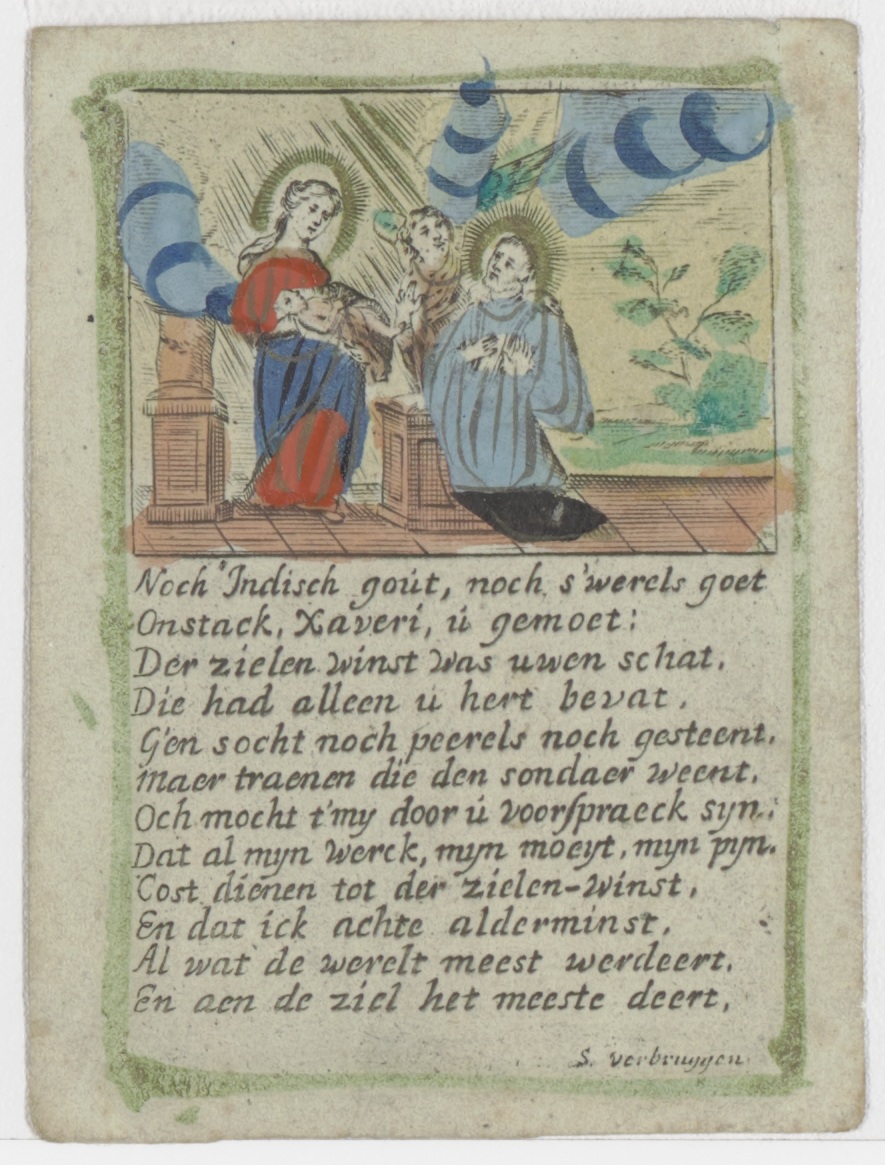 Noch Indisch goút, noch s'werels goet
Onstack, Xaveri, ú gemoet:
Der zielen winst was uwen schat,
Die had alleen ú hert bevat,
G'en socht noch peerels noch gesteent,
Maer traenen die den sondaer weent,
Och mocht t'my door ú voorſpraeck syn,
Dat al myn werck, myn moeyt, myn pyn,
Cost dienen tot der zielen-winst,
En dat ick achte alderminst,
Al wat de werelt meest werdeert,
En aen de ziel het meeste deert,
S. verbruggen